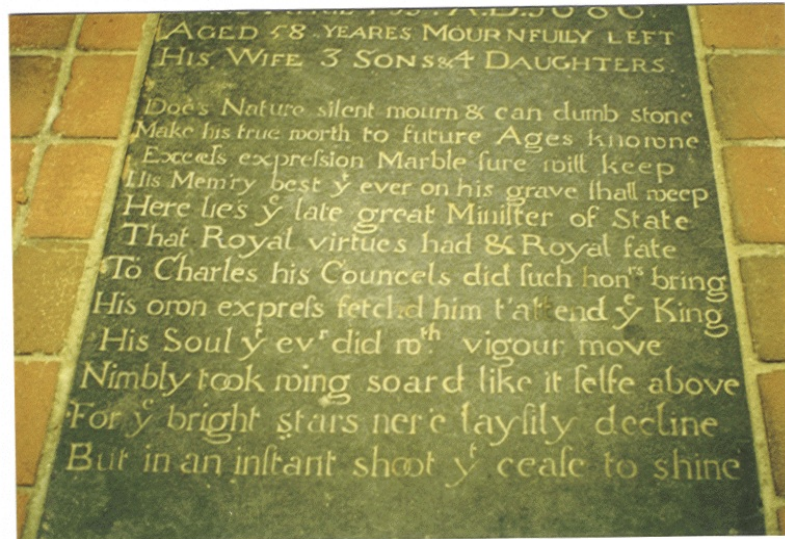 A.D. 1686.
AGED 58 YEARES MOURNFULLY LEFT
HIS WIFE 3 SONS & 4 DAUGHTERS.
Doe's Nature silent mourn & can dumb stone
Make his true worth to future Ages knowne
Excess expreſsion Marble ſure will keep
His Mem'ry best yᵗ ever on his grave ſhall weep
Here lie's yᵉ late great Miniſter of State
That Royal virtues had & Royal fate
To Charles his Councels did ſuch honʳˢ bring
His own expreſs fetch'd him t'attend yᵉ King
His Soul yᵗ evʳ did wᵗʰ vigour move
Nimbly took wing soard like it ſelfe above
For yᵉ bright stars ner'e layſily decline
But in an inſtant shoot yᵗ ceaſe to shine